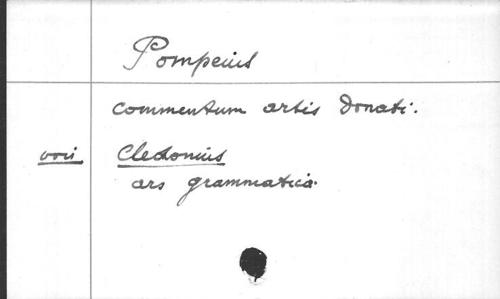 Pompeius
commentum artis Donati.
voir Cledonius
ars grammatica.